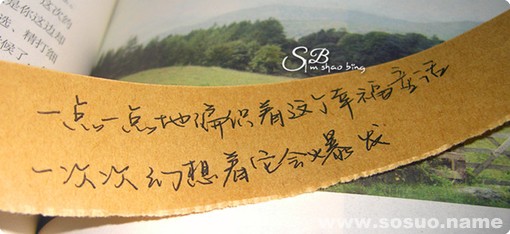 这次约
是你这边却
选、精打细
候了
SB
I'm shao bing
一点一点地编织着这个幸福童话
一次次幻想着它会爆发
www.sosuo.name